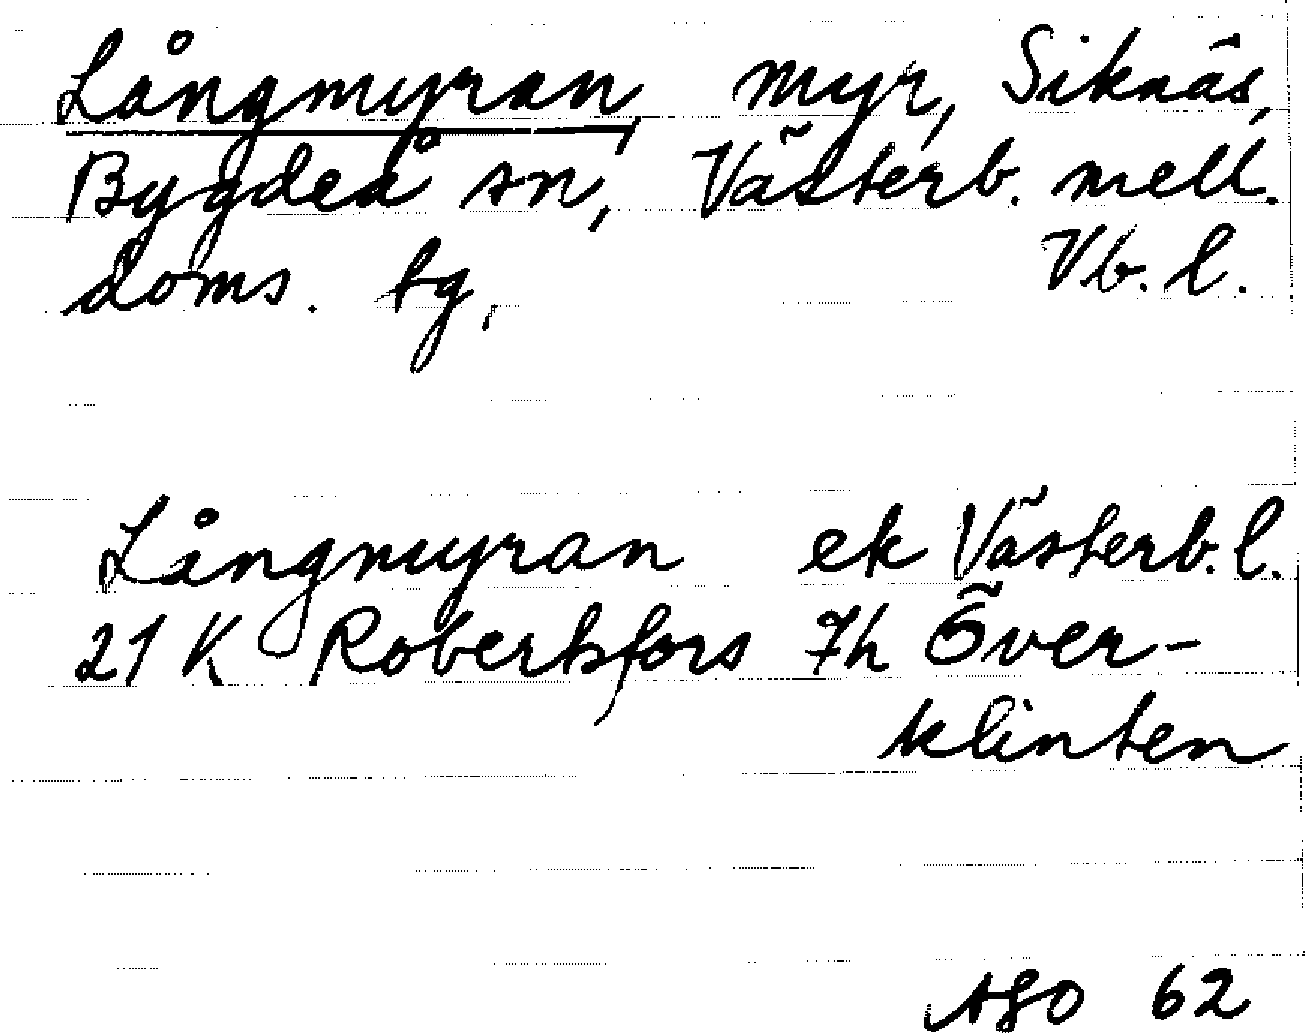 Långmyran, myr, Siknäs,
Bygdeå sn, Västerb. mell.
doms. tg, Vb. l.
Långmyran ek Västerb. l.
21 K Robertsfors 7h Över-
klinten
62